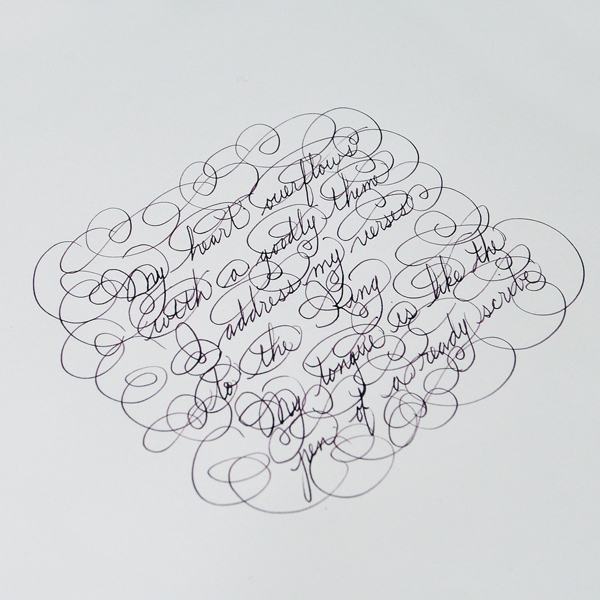 My heart overflows
with a goodly theme
I address my verses
to the King
My tongue is like the
pen of a ready scribe